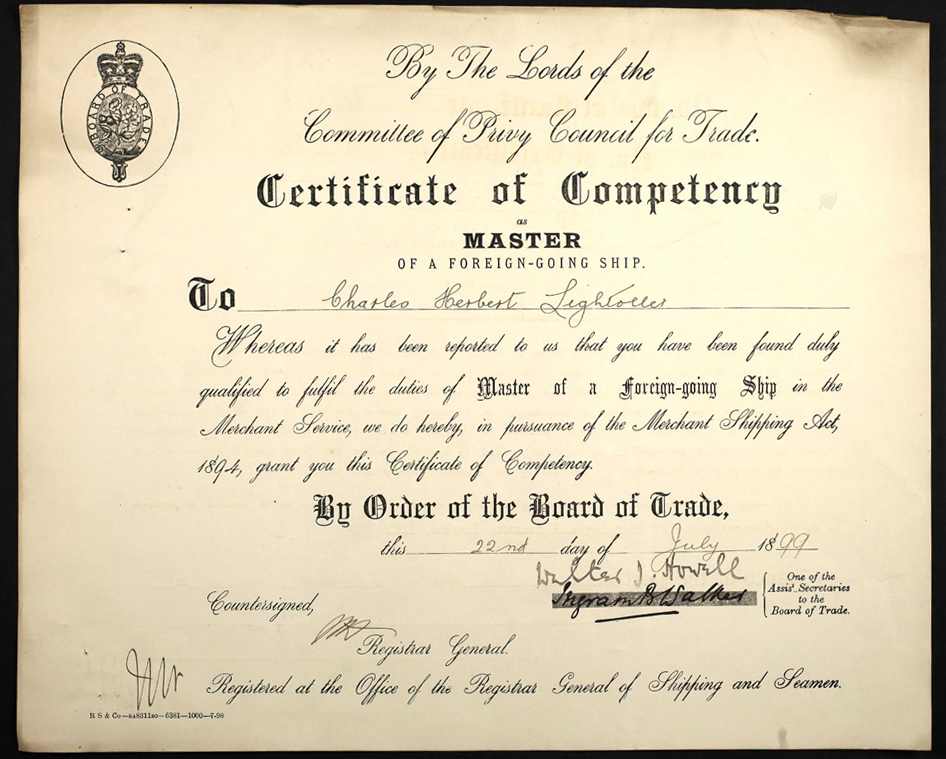 BOARD OF TRADE
By The Lords of the
Committee of Privy Council for Trade.
Certificate of Competency
as
MASTER
OF A FOREIGN-GOING SHIP.
To Charles Herbert Lightoller
Whereas it has been reported to us that you have been found duly
qualified to fulfil the duties of Master of a Foreign-going Ship in the
Merchant Service, we do hereby, in pursuance of the Merchant Shipping Act,
1894, grant you this Certificate of Competency.
By Order of the Board of Trade,
this 22nd day of July 1899
Walter J. Howell
Ingram B Walker
One of the
Assist. Secretaries
to the
Board of Trade.
Countersigned,
Registrar General.
Registered at the Office of the Registrar General of Shipping and Seamen.
R S & Co—8A8311so—6381—1000—7-98